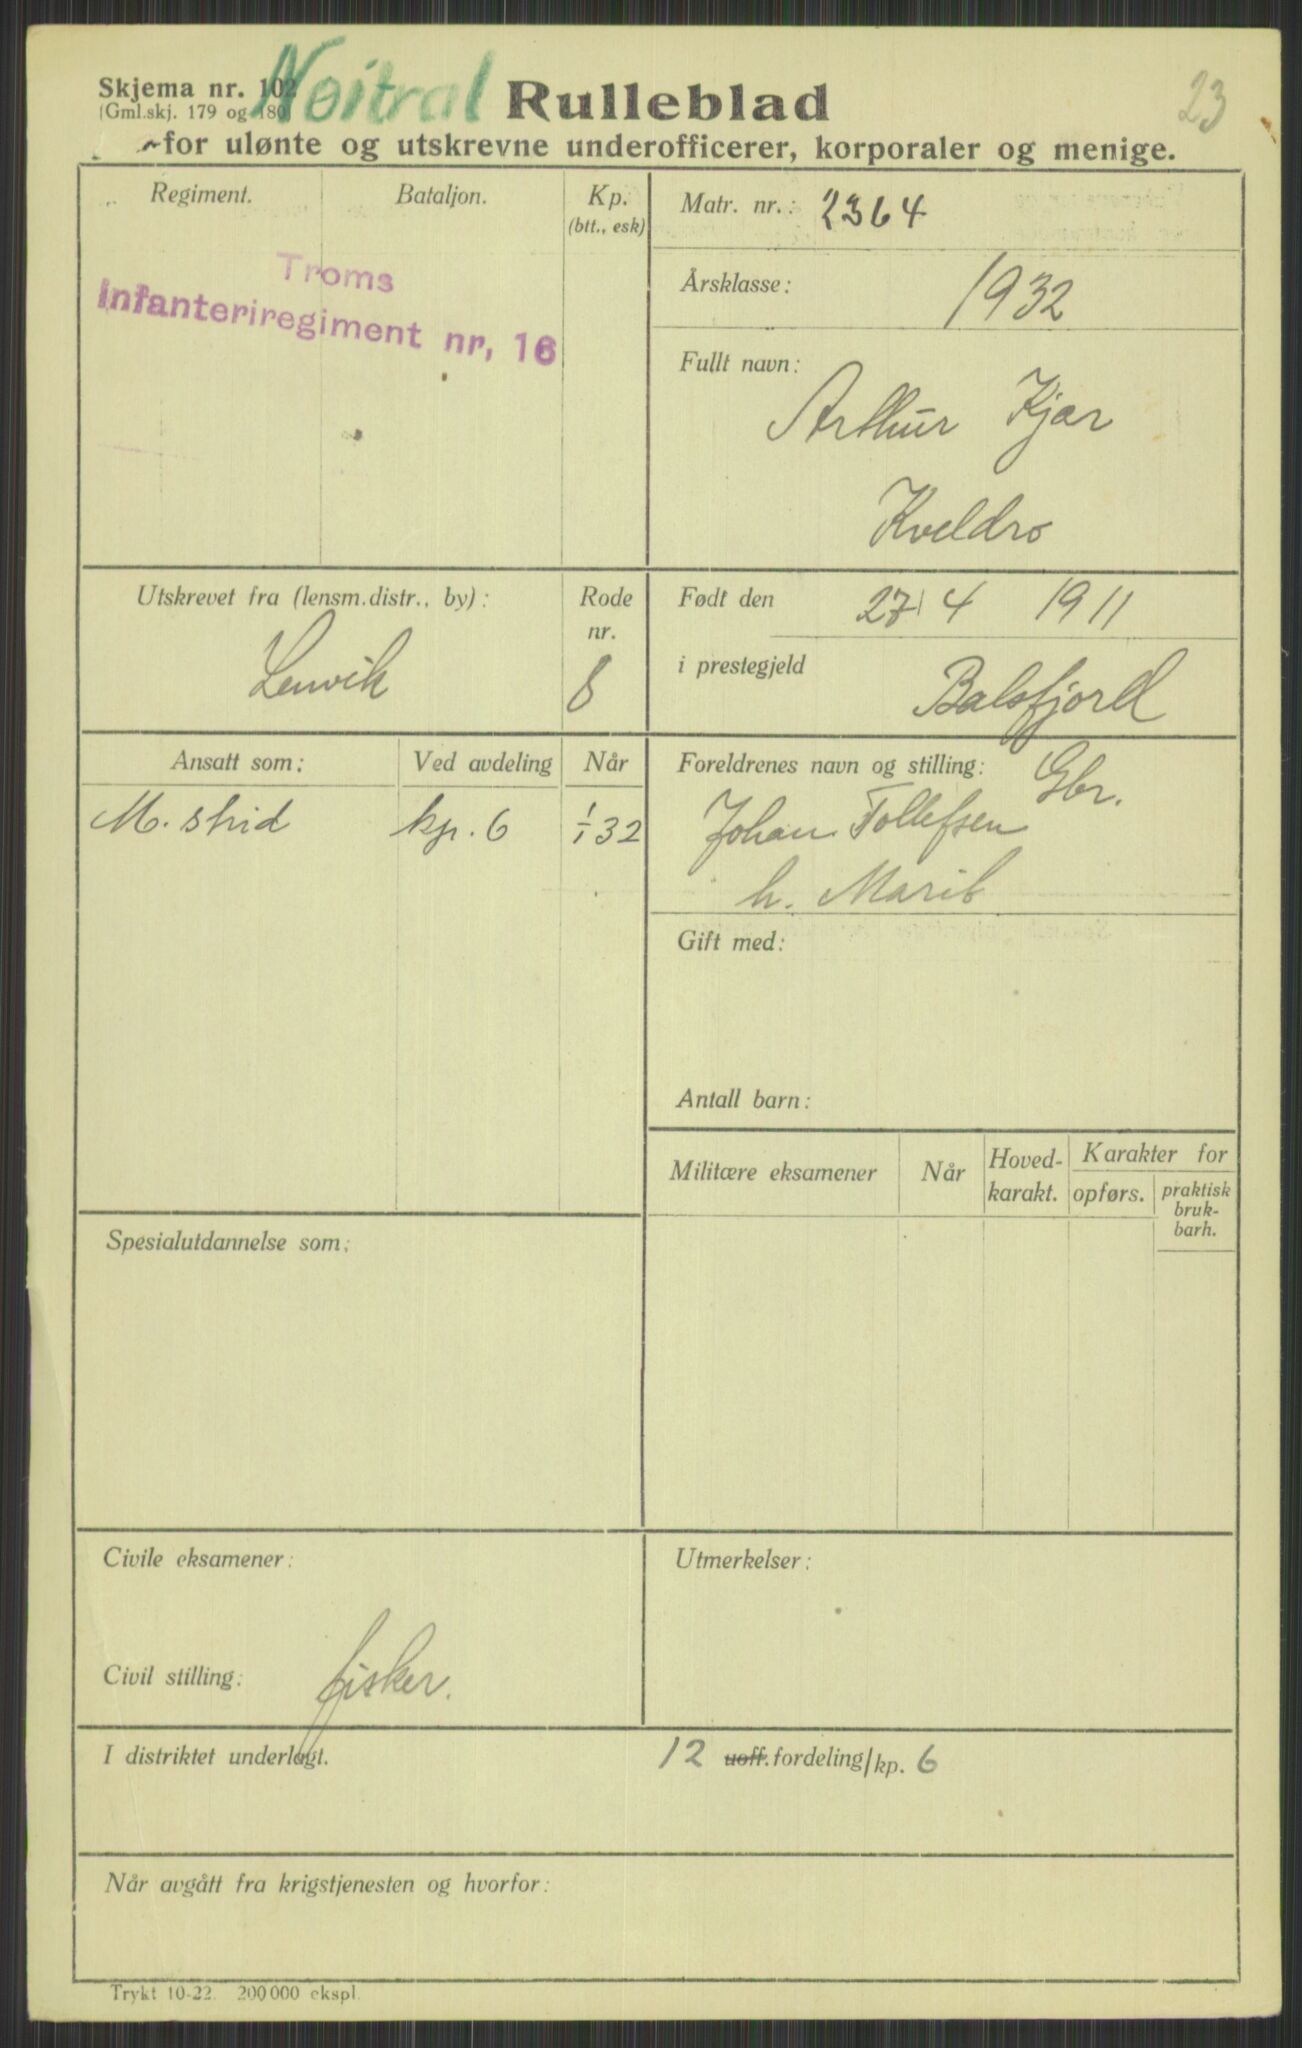 Nöitral
23
Skjema nr. 102
(Gml.skj. 179 og 180)
Rulleblad
for ulønte og utskrevne underofficerer, korporaler og menige.
Regiment.
Bataljon.
Kp.
(btt., esk)
Troms
Infanteriregiment nr, 16
Matr. nr.: 2364
Årsklasse: 1932
Fullt navn:
Arthur Kjær
Kveldro
Utskrevet fra (lensm.distr., by):
Lenvik
Rode
nr.
8
Født den 27/4 1911
i prestegjeld Balsfjord
Ansatt som: Ved avdeling Når
M. strid kp. 6 1/1 32
Foreldrenes navn og stilling: Gbr.
Johan Tollefsen
h. Marit
Gift med:
Antall barn:
Militære eksamener
Når
Hoved-
karakt.
Karakter for
opførs.
praktisk
bruk-
barh.
Spesialutdannelse som:
Civile eksamener:
Civil stilling: fisker.
Utmerkelser:
I distriktet underlagt. 12 uoff. fordeling/kp. 6
Når avgått fra krigstjenesten og hvorfor:
Trykt 10-22. 200000 ekspl.